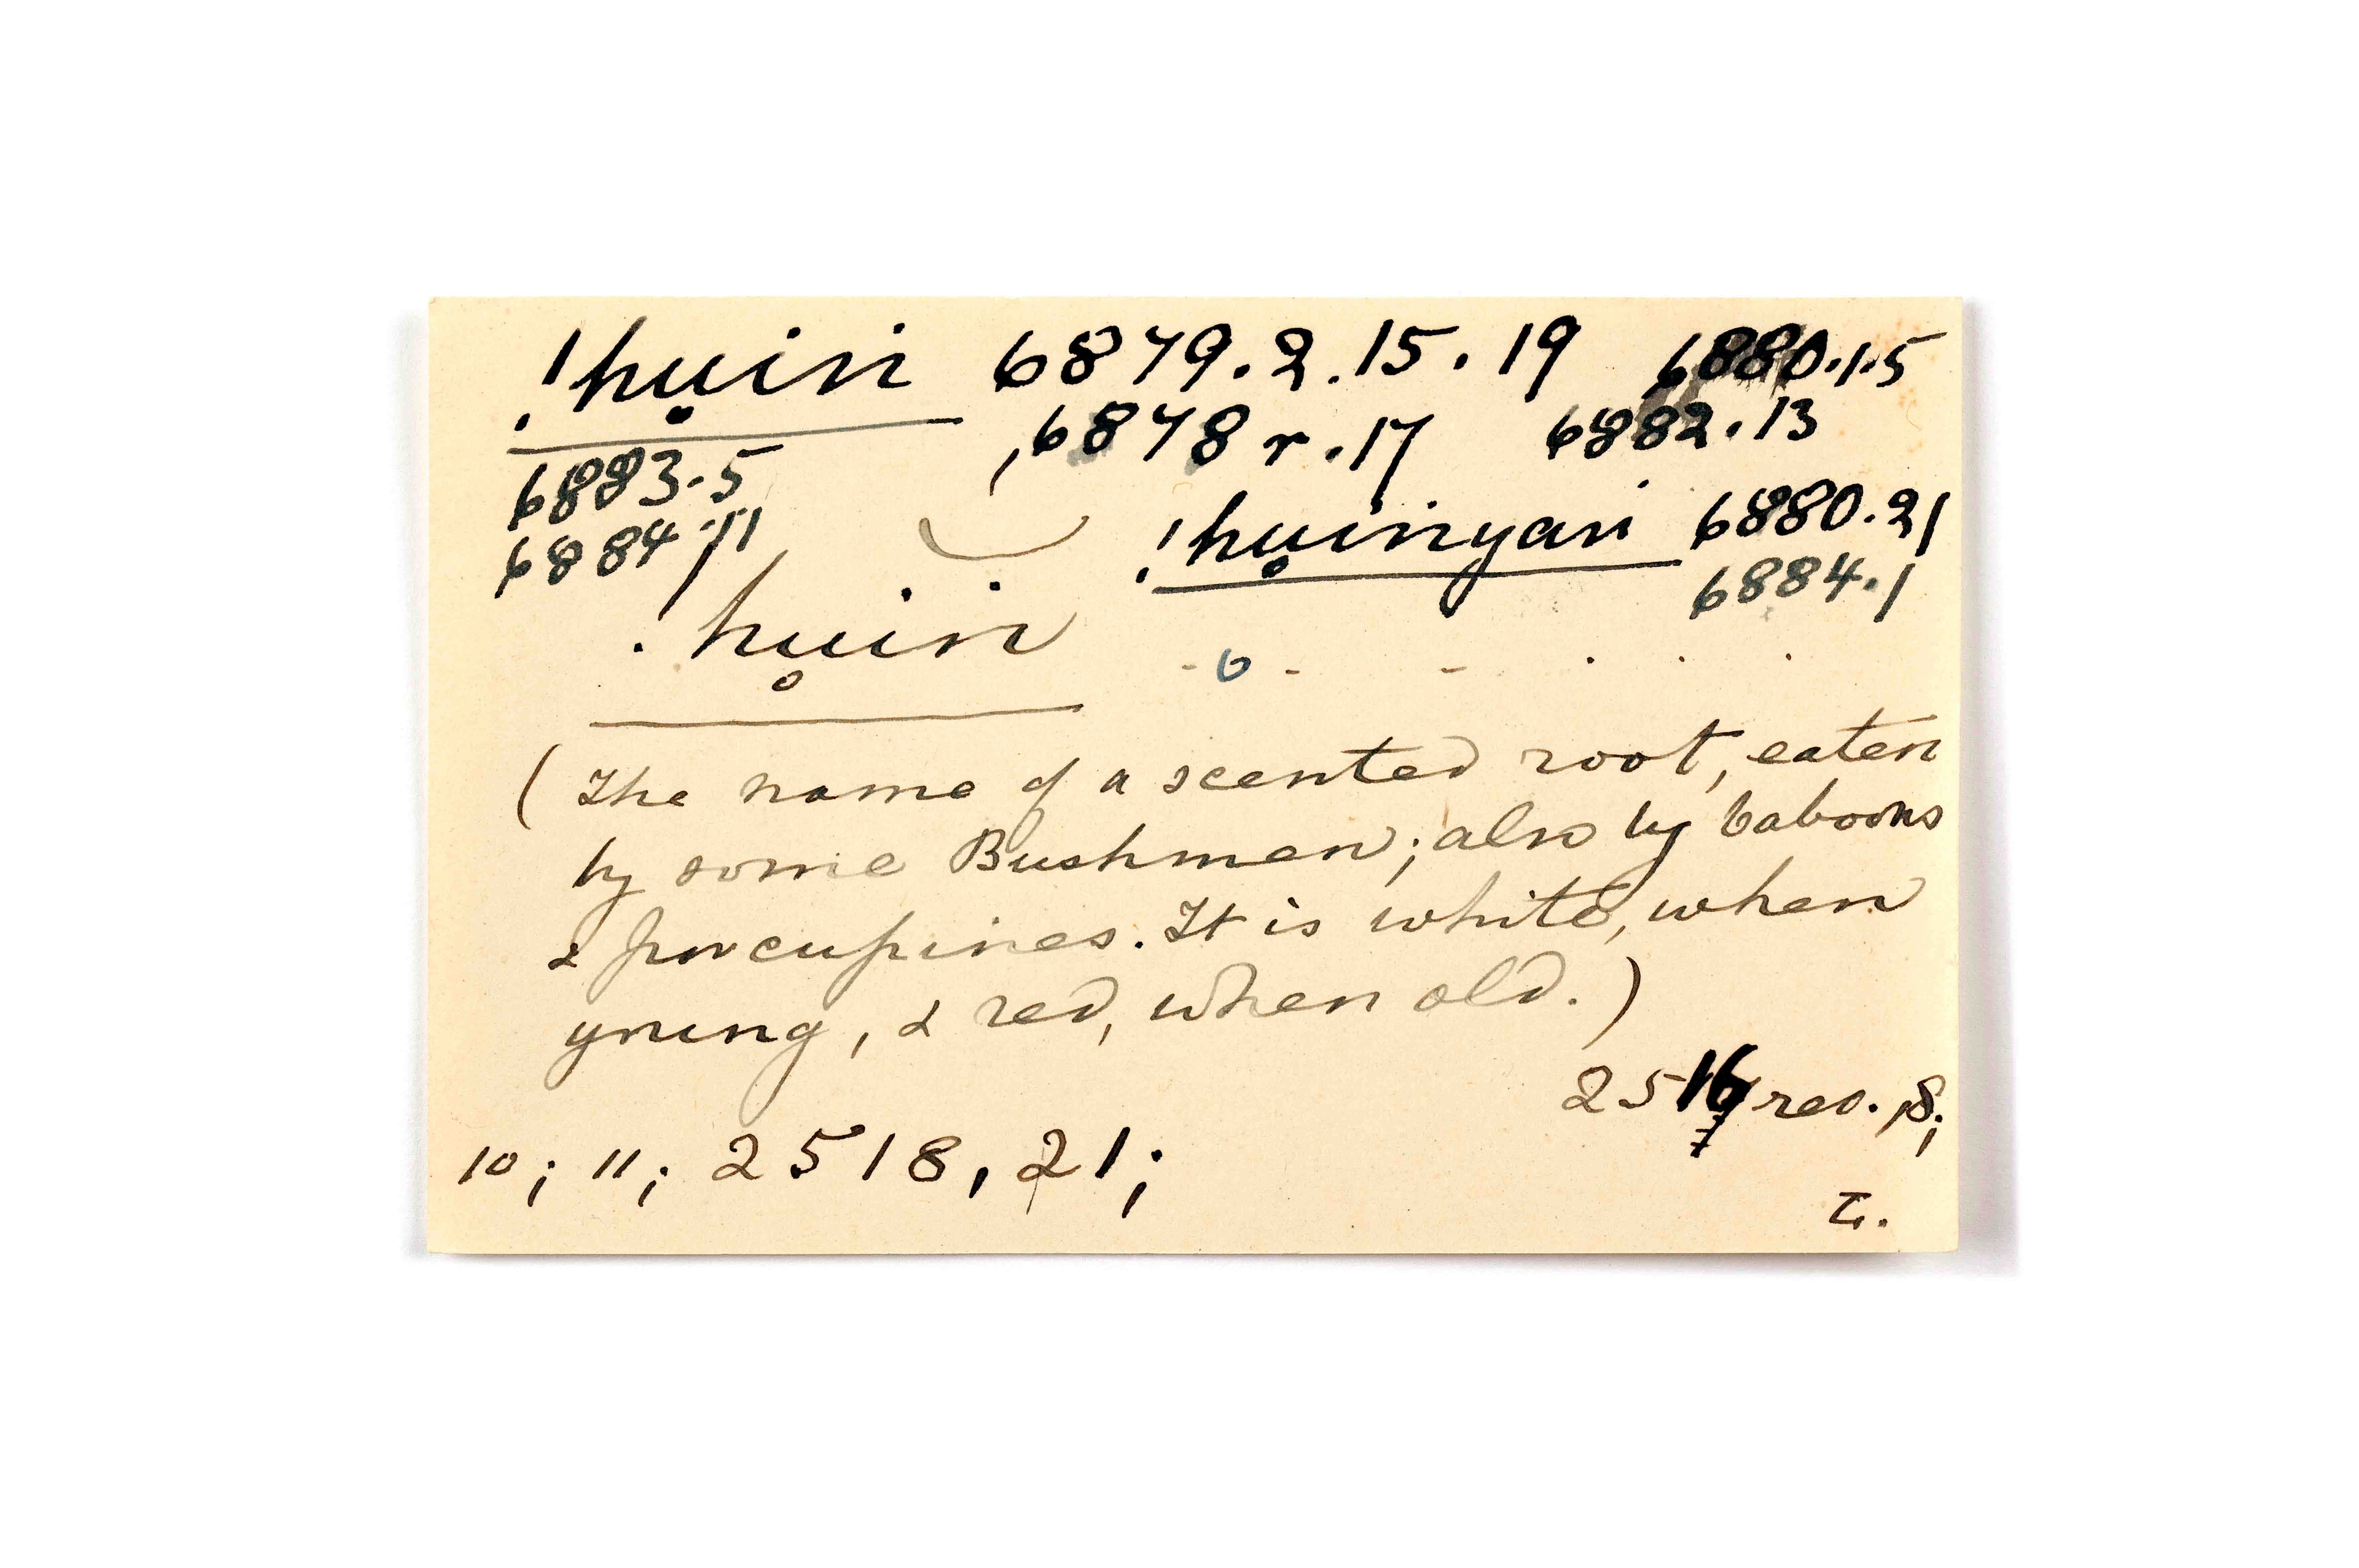 !hu̥in 6879.2.15.19 6880.1.5
6878 r.17 6882.13
6883.5
6884.11
!hu̥inyan 6880.21
6884.1
!hu̥in
(The name of a scented root, eaten
by some Bushmen; also by baboons
& porcupines. It is white, when
young, & red, when old.)
rev. 8;
10; 11; 2518, 21;